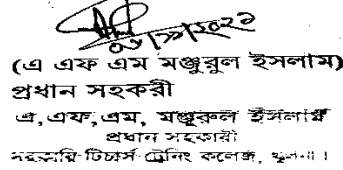 ০৮/১১/২০২১
(এ এফ এম মঞ্জুরুল ইসলাম)
প্রধান সহকরী
এ,এফ,এম, মঞ্জুরুল ইসলাম
প্রধান সহকারী
সরকারি টিচার্স ট্রেনিং কলেজ, খুলনা।